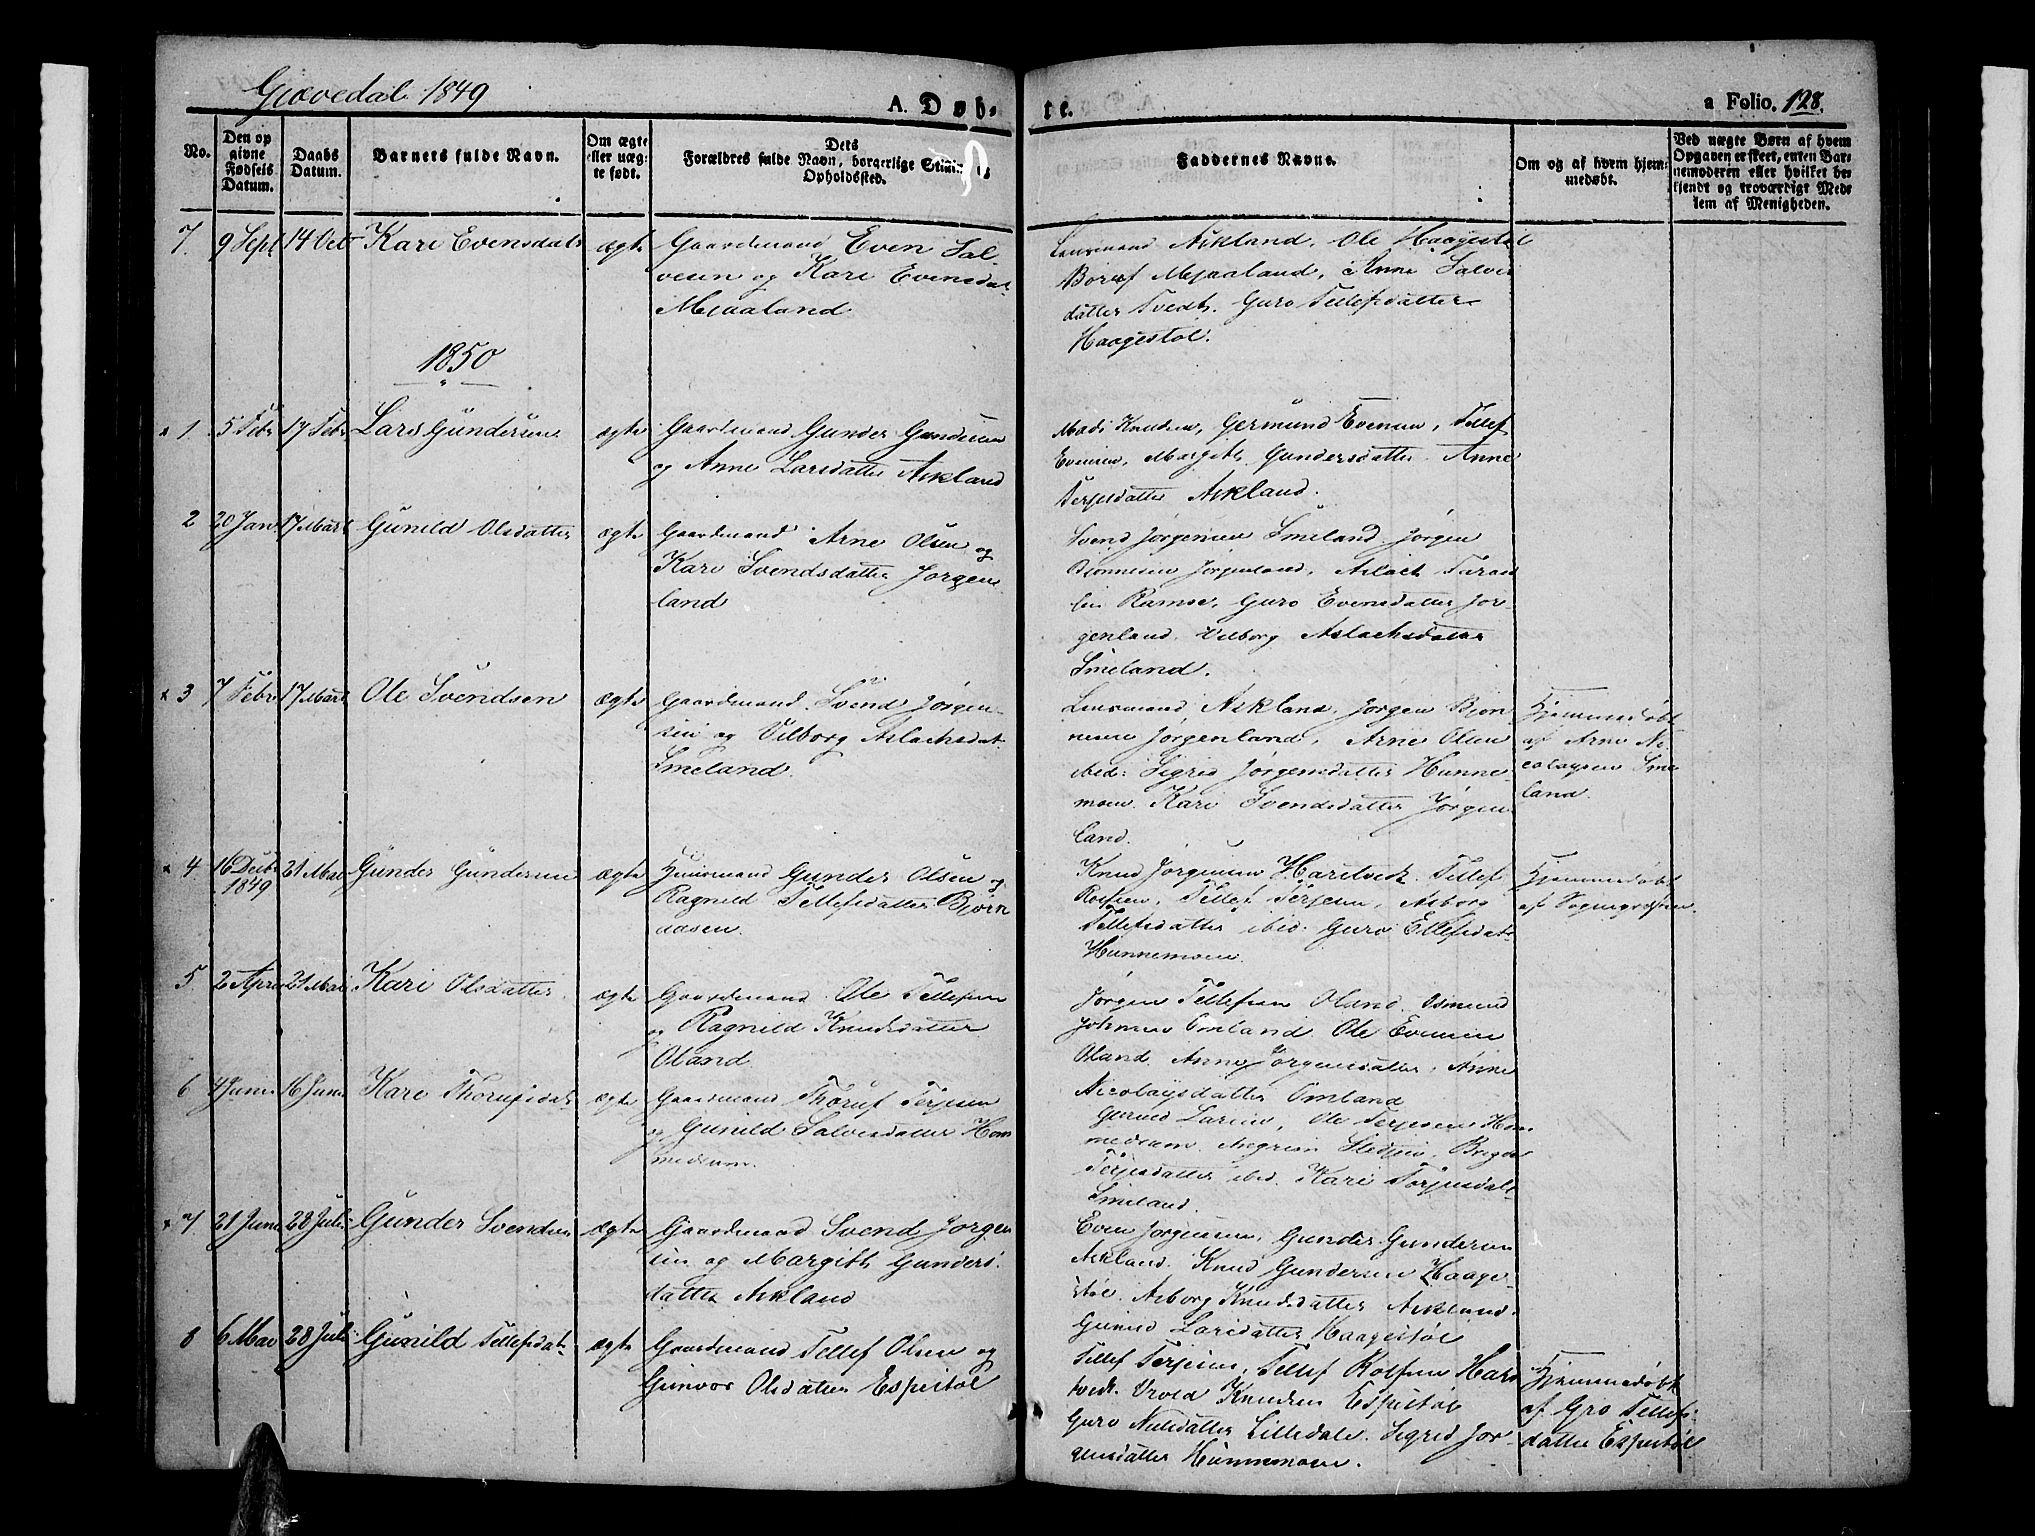 Gjovedal 1849
A. Døb-
te.
a Folio. 128.
No.
Den op
givne
Fødsels
Datum.
Daabs
Datum.
Barnets fulde Navn.
Om ægte
eller uæg-
te født.
Dets
Forældres fulde Navn, borgerlige
Opholdssted.
Faddernes Navne.
Om og af hvem hjem-
medøbt.
Ved uægte Børn af hvem
Opgaven er skeet, enten Bar-
nemoderen eller hvilket be-
kjendt og troværdigt Med-
lem af Menigheden.
7. 9 Sept 14 Oct Kari Evensdatr ægte
Gaardmand Even Sal-
vesen og Kari Evensdat-
Mjaaland
Lensmand Askland, Ole Haagestøl
Mjaaland, Anne Salves
datter Tvedt. Guro Tellefsdatter
Haagestøl.
1850
1 5 Febr 17 Febr Lars Gundersen ægte
Gaardmand Gunder Gundersen
og Anne Larsdatter Askland
Mads Knudsen, Germund Evensen, Tellef
Evensen, Margith Gundersdatter Anne
Terjesdatter Askland.
2 20 Jan 17 Mart Gunild Olsdatter ægte
Gaardmand Arne Olsen og
Kari Svendsdatter Jørgen
land
Svend Jørgensen Smeland Jørgen
Bjønnesen Jørgenland, Aslach Taral
sen Ramse, Guro Evensdatter Jør-
genland. Vilborg Aslachsdatter
Smeland.
x 3 7 Febr 17 Mart Ole Svendsen ægte
Gaardmand Svend Jørgen-
sen og Vilborg Aslachsdat-
Smeland.
Lensmand Askland, Jørgen Bjøn-
nesen Jørgenland, Arne Olsen
ibid: Sigrid Jørgensdatter Hunne-
moen. Kari Svendsdatter Jørgen
land.
Hjemmedøbt
af Arne Ni-
colaysen Sme
land.
x 4 16 Decbr 1849 21 Mai Gunder Gundersen ægte
Huusmand Gunder Olsen og
Ragnild Tellefsdatter Bjørn
aasen.
Knud Jørgensen Hartvedt. Tellef
Rolfsen, Tellef Terjesen, Asborg
Tellefsdatter ibid. Guro Ellefsdatr
Hunnemoen.
Hjemmedøbt
af Sognepræsten.
5 2 April 21 Mai Kari Olsdatter ægte
Gaardmand Ole Tellefsen
og Ragnild Knudsdatter
Oland
Jørgen Tellefsen Oland Osmund
Johnsen Omland. Ole Evensen
Oland. Anne Jørgensdatter, Anne
Nicolaysdatter Omland
6 4 Juni 16 Juni Kari Thorufsdatr ægte
Gaardmand Thoruf Terjesen
og Gunild Salvesdatter Hom
medrum.
Larsen, Ole Terjesen Hom
medrum.
Terjesdatter ibid. Kari Torjusdatr
Smeland.
x 7 21 Juni 28 Juli Gunder Svendsen ægte
Gaardmand Svend Jørgen
sen og Margith Gunders-
datter Askland
Even Jørgensen, Gunder Gundersen
Askland. Knud Gundersen Haage-
støl. Asborg Knudsdatter Askland.
Gunild Larsdatter Haagestøl
8 6 Mai 28 Juli Gunild Tellefsdatr ægte
Gaardmand Tellef Olsen og
Gunvor Olsdatter Espestøl
Tellef Terjesen, Tellef Rolfsen Hart
vedt. Vrold Knudsen Espestøl
Guro Nilsdatter Lilledal. Sigrid Jør-
gensdatter Hunnemoen.
Hjemmedøbt
af Gro Tellefs-
datter Espestøl